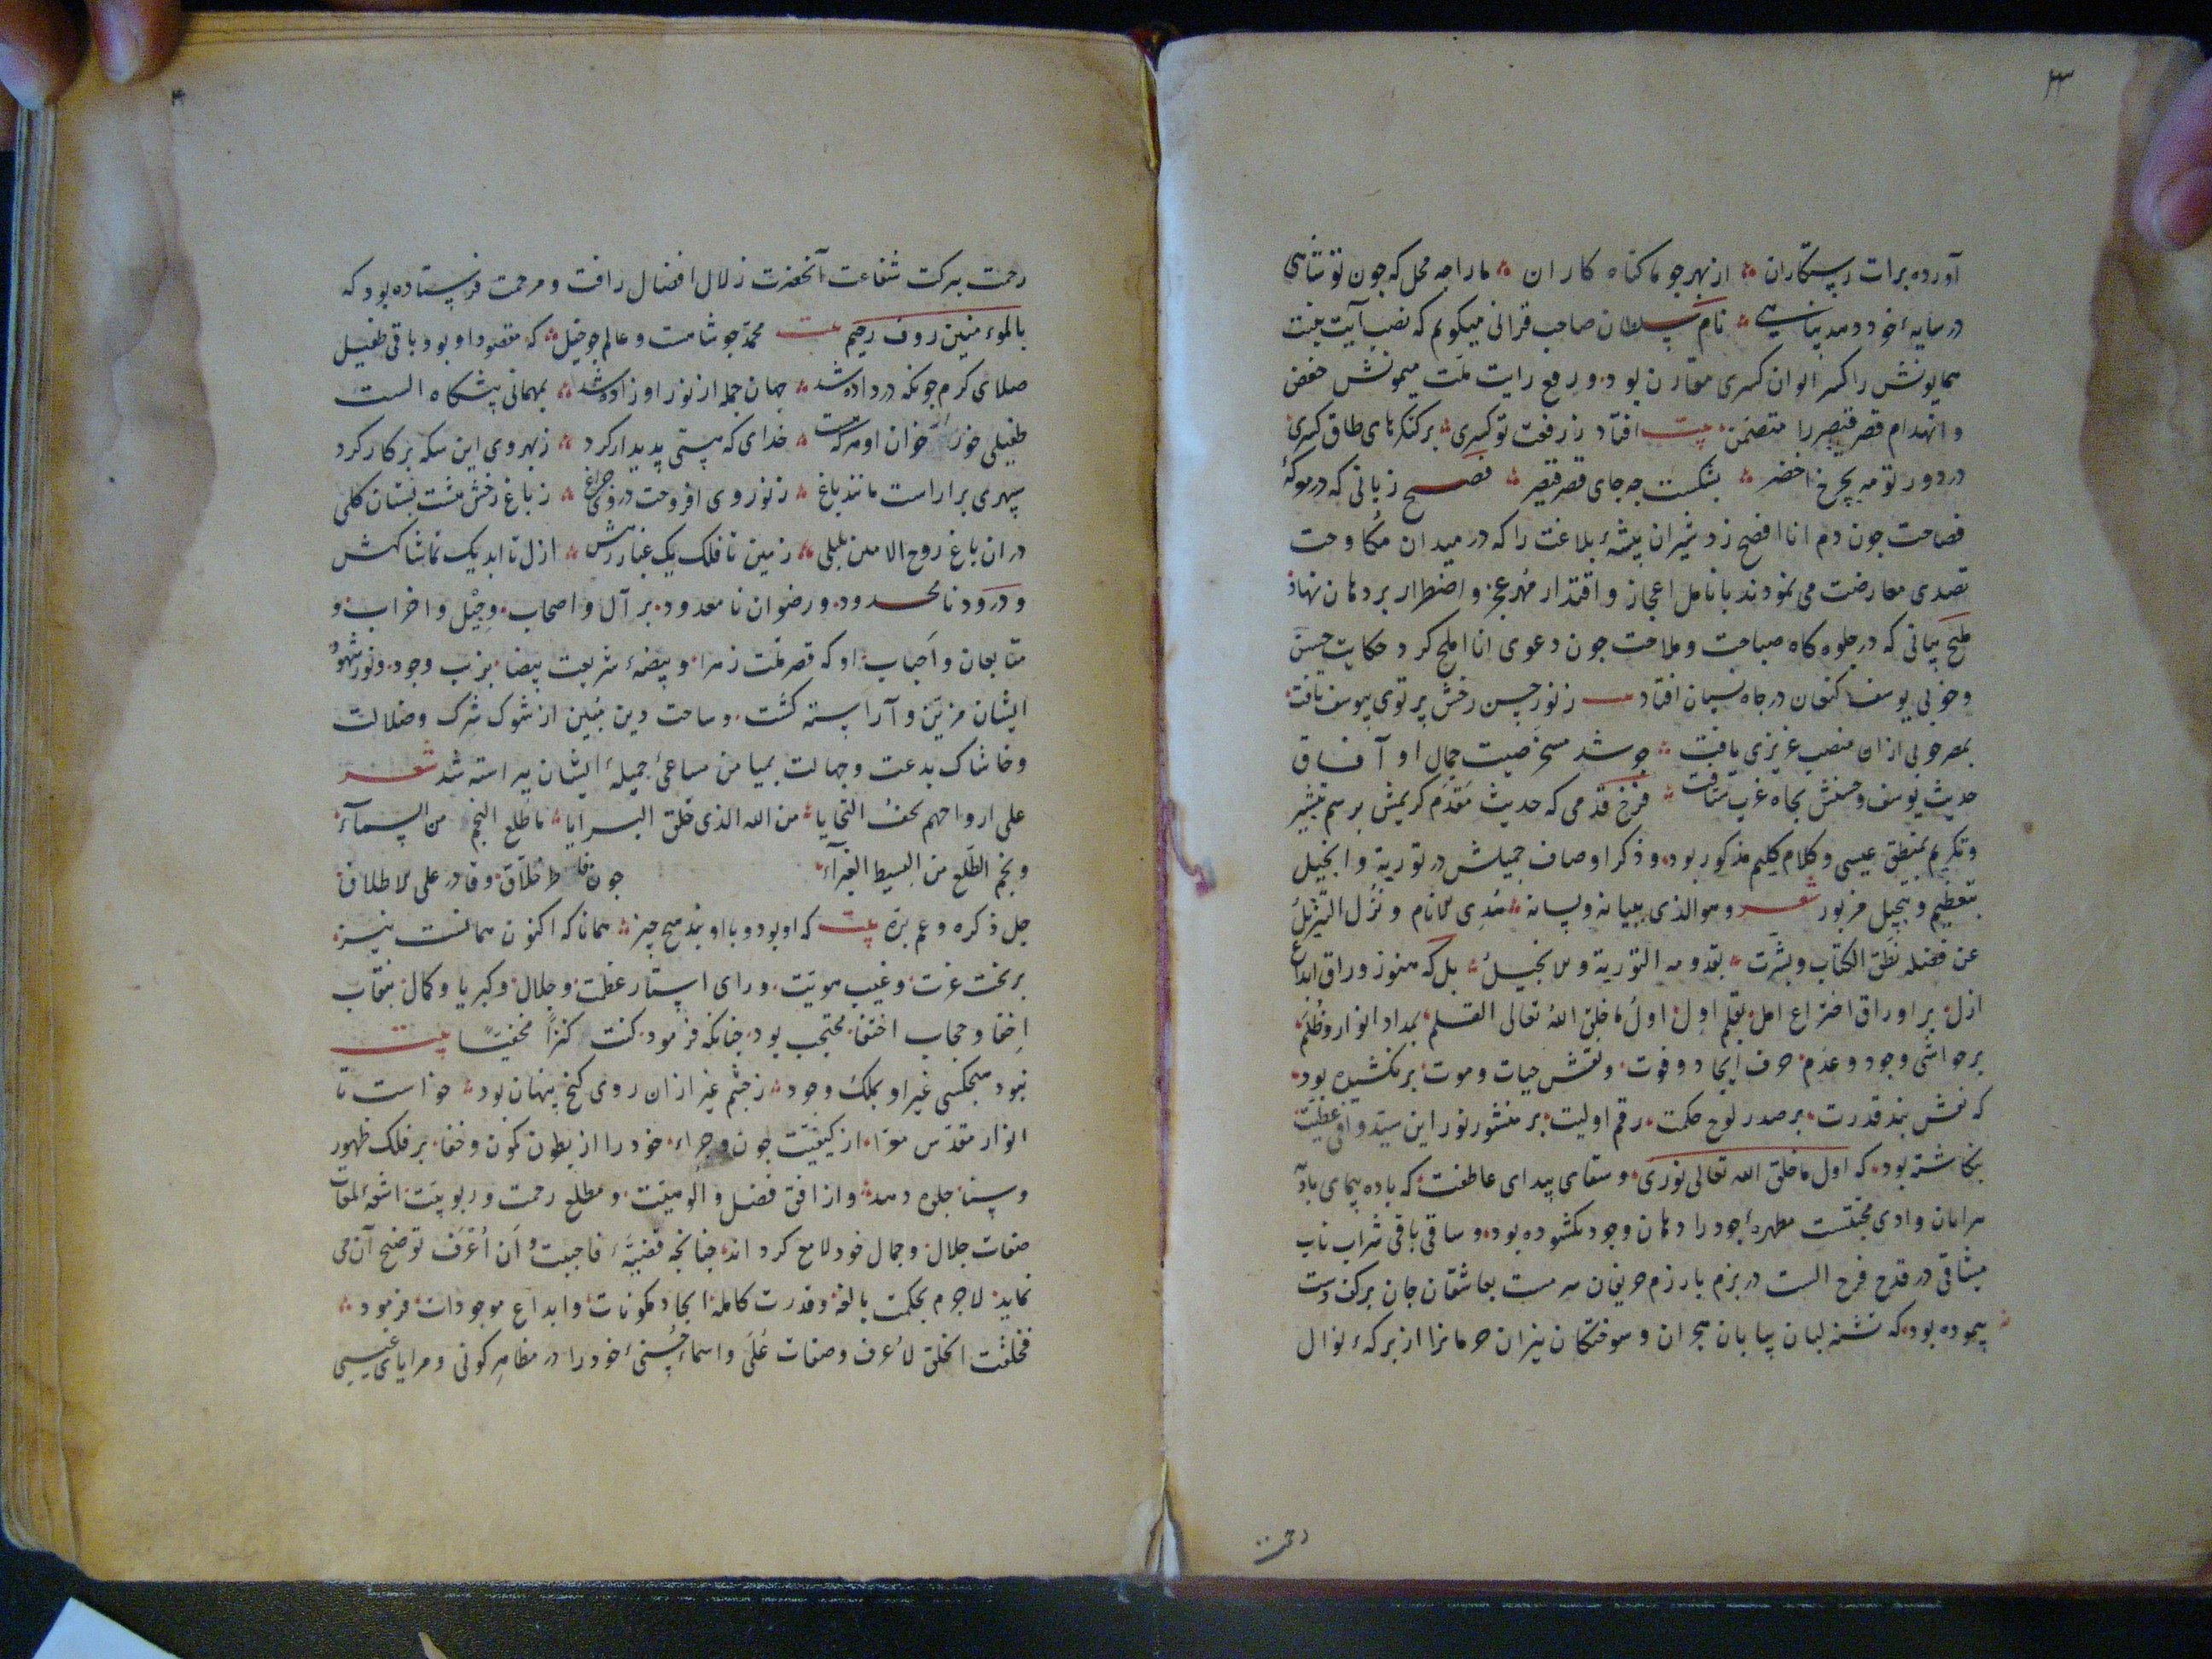 ۳
آورده برات رستکاران ؞ از بهر جو ما کناه کاران ؞ ما را جه محل که جون تو شاهی
در سایهٔ خود دهد پناهی ؞ نام سلطان صاحب قرانی میکویم که نصب آیت بعثت
همایونش را کسر ایوان کسری مقارن بود و رفع رایت ملّت میمونش خفض
و انهدام قصر قیصر را متضمن بیت افتاد ز رفعت تو کسری ؞ بر کنکرهای طاق کسری
در دور تو مه بچرخ اخضر ؞ بشکست جه جای قصر قیصر ؞ فصیح زبانی که در معرکهٔ
فصاحت جون دم انا افصح زد شیران بیشهٔ بلاغت را که در میدان مکاوحت
تصدی معارضت می نمودند بانامل اعجاز و اقتدار مهر عجز و اضطرار بر دهان نهاد
ملیح بیانی که در جلوه کاه صباحت و ملاحت جون دعوی انا املح کرد حکایت حسن
و خوبی یوسف کنعان در جاه نسیان افتاد ز نور حسن رخش پرتوی بیوسف تافت
بمصر خوبی از ان منصب عزیزی یافت ؞ جو شد مسخّر صیت جمال او آفاق
حدیث یوسف و حسنش بجاه غرب شتافت ؞ فرّخ قدمی که حدیث مَقدَم کریمش برسم تبشیر
و تکریم بمنطق عیسی و کلام کلیم مذکور بود و ذکر اوصاف جمیلش در توریة و انجیل
بتعظیم و تبجیل مزبور شعر و هو الذی ببیانه و لسانه ؞ هُدِی الانام و نُزّل التنزیلُ
عن فضله نطق الکتاب و بشّرت ؞ بقدومه التوریة و الانجیلُ ؞ بل که هنوز وراق ابداع
ازل بر اوراق اختراع امل بقلم اول اولُ ما خلق اللهُ تعالی القلم بمداد انوار و ظُلَم
بر حواشی وجود و عدَم حرف ایجاد و فوت و نقش حیات و موت بر نکشیده بود
که نقش بند قدرت بر صدر لوح حکمت رقم اولیت بر منشور نور این سیّد وافی عطیّت
نکاشته بود که اول ما خلق الله تعالی نوری و سقای بیدای عاطفت که باده پیمای بادیه
هرایان وادی محبتست مطهرهٔ جود را دهان وجود نکشوده بود و ساقی باقی شراب ناب
میثاقی در قدح فرح الست در بزم بارزم حریفان سر مست بعاشقان جان بر کف دست
پیموده بود که تشنه لبان بیابان هجران و سوختکان نیران حرمانرا از برکهٔ نوال
رحمت
۴
رحمت ببرکت شفاعت آنحضرت زلال افضال رافت و مرحمت فرستاده بود که
بالمؤمنین رؤف رحیم بیت محمّد جو شاهست و عالم جو خیل ؞ که مقصود او بود باقی طفیل
صلای کرم جونکه در داده شد ؞ جهان جمله از نور او زاده شد ؞ بمهمانی پیشکاه الست
طفیلی خور خوان او هرکه هست ؞ خدای که هستی پدیدار کرد ؞ ز بهر وی این سکه بر کار کرد
سپهری براراست مانند باغ ؞ ز نور وی افروخت در وی چراغ ؞ ز باغ رخش هشت بستان کلی
در ان باغ روح الامین بلبلی ؞ زمین تا فلک یک غبار رهش ؞ ازل تا ابد یک تماشا کهش
و درود نامحدود و رضوان نامعدود بر آل و اصحاب وجیل و احزاب و
متابعان و اَحباب او که قصر ملّت زهرا و بیضهٔ شریعت بیضا بزیب وجود و نور شهود
ایشان مزیّن و آراسته کشت و ساحت دین مُبین از شوک شرک و ضلالت
و خاشاک بدعت و جهالت بمیامن مساعیٔ جمیلهٔ ایشان پیراسته شد شعر
علی ارواحهم تحفُ التحایا ؞ من الله الذی خلق البرایا ؞ ما طلع النجم من السمآء
و نجم الطّلع من البسیط الغبرآء جون خلّاق و قادر علی الاطلاق
جل ذکره و عم برّه بیت که او بود و با او نبد هیچ جیز ؞ همانا که اکنون همانست نیز
بر تخت عزت و غیب هویّت ورای استار عظمت و جلال و کبریا و کمال بنقاب
اِخفا و حجاب اختفا محتجب بود جنانکه فرمود کنت کنزاً مخفیّا بیت
نبود هیچکسی غیر او بملک وجود ؞ ز جشم غیر از ان روی کنج پنهان بود ؞ خواست تا
انوار مقدّس معرّا از کیفیّت جون و جراء خود را از بطون کمون و خفا بر فلک ظهور
و سنا جلوه دهد و از افق فضل و الوهیّت و مطلع رحمت و ربوبیّت اشعهٔ لمعات
صفات جلال و جمال خود لامع کرداند جنانجه قضیّهٔ فاحببت اَن اُعْرَف توضیح آن می
نماید لاجرم بحکمت بالغه و قدرت کامله ایجاد مکونات و ابداع موجودات فرمود ؞
فخلقت الخلق لاُعرف و صفات عُلَی و اسماء حُسنیٔ خود را در مظاهرِ کونی و مرایای غیبی